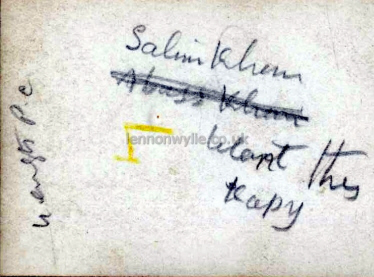 Salim Khan
Abass Khan
want this
Kopy
lennonwylie.co.uk
P.C